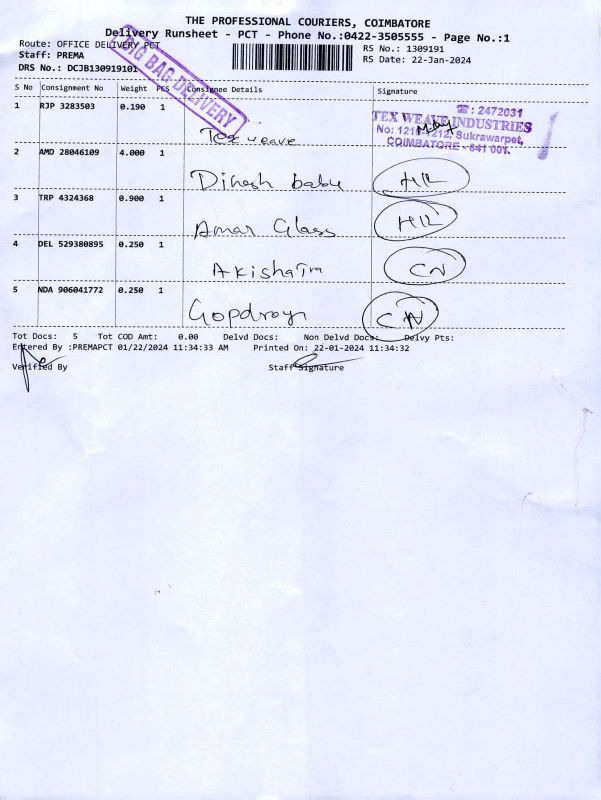 THE PROFESSIONAL COURIERS, COIMBATORE
Delivery Runsheet - PCT - Phone No.:0422-3505555 - Page No.:1
Route: OFFICE DELIVERY PCT
RS No.: 1309191
Staff: PREMA
RS Date: 22-Jan-2024
DRS No.: DCJB130919101
BIG BAG DELIVERY
S No Consignment No Weight PCS Consignee Details Signature
1 RJP 3283503 0.190 1
Tex weave
☎: 2472031
TEX WEAVE INDUSTRIES
Sukrawarpet,
COIMBATORE - 641 001.
2 AMD 28046109 4.000 1
Dinesh babu
3 TRP 4324368 0.900 1
Amar Glass
4 DEL 529380895 0.250 1
CN
5 NDA 906041772 0.250 1
CN
Tot Docs: 5 Tot COD Amt: 0.00 Delvd Docs: Non Delvd Docs: Delvy Pts:
Entered By :PREMAPCT 01/22/2024 11:34:33 AM Printed On: 22-01-2024 11:34:32
Verified By Staff Signature